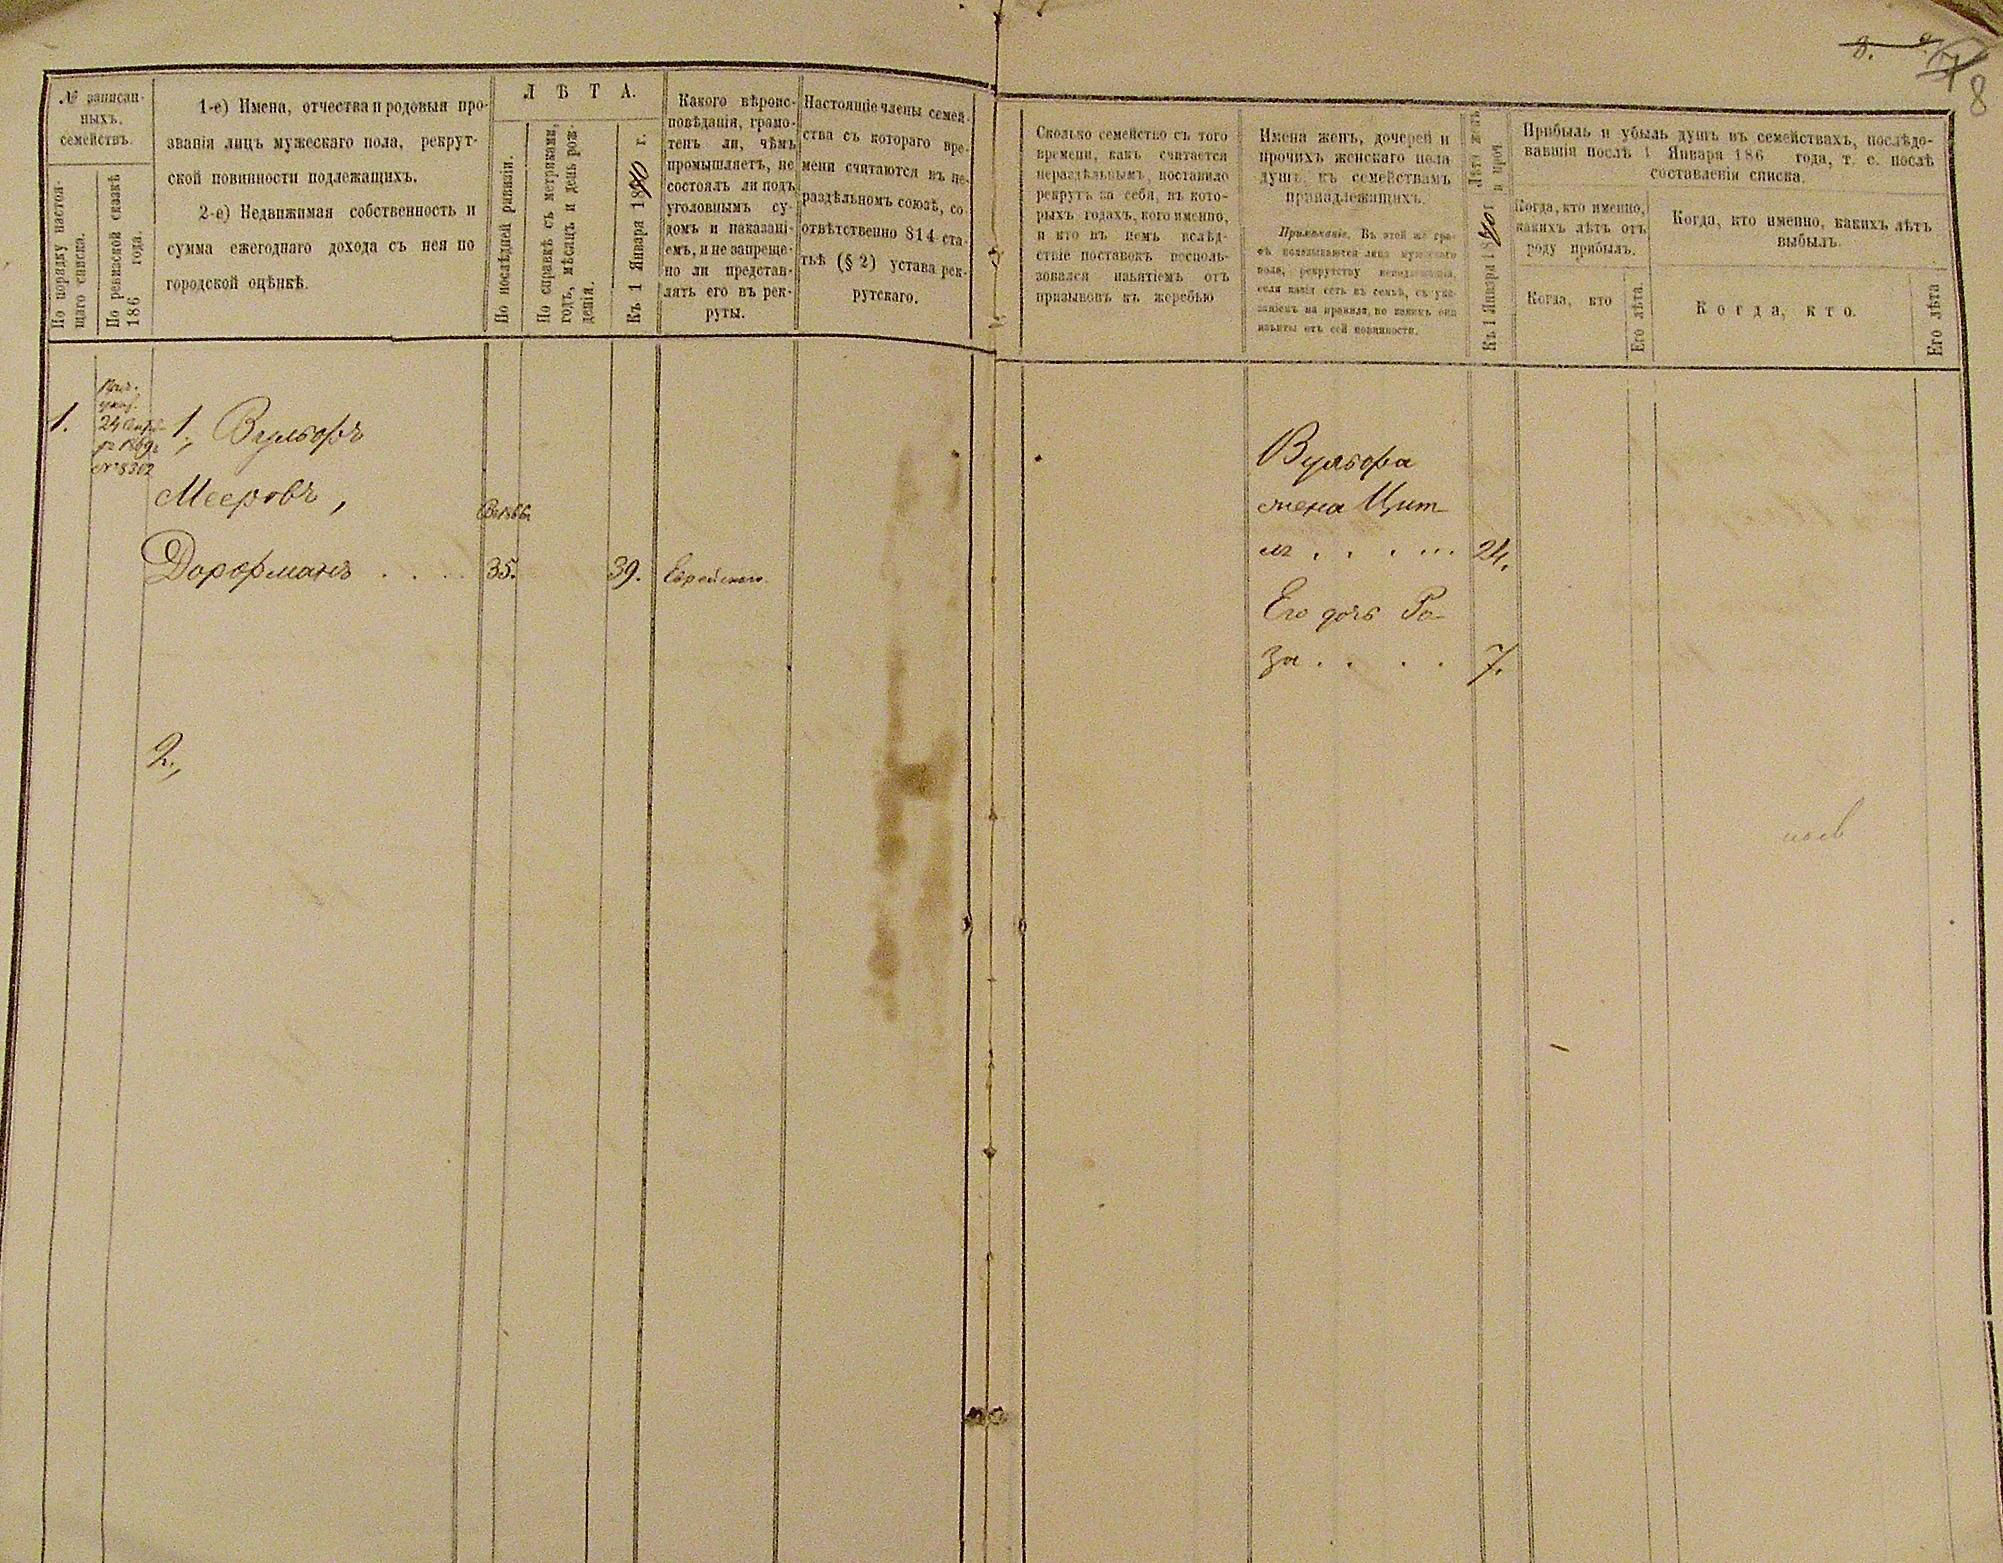 8.
8
№ записан-
ныхъ.
семействъ.
По порядку настоя-
щаго списка.
По ревизской сказкѣ
186 года.
1-е) Имена, отчества и родовыя про-
званія лицъ мужескаго пола, рекрут-
ской повинности подлежащихъ.
2-е) Недвижимая собственность и
сумма ежегоднаго дохода съ нея по
городской оцѣнкѣ.
ЛѢТА.
По послѣдней ревизіи.
По справкѣ съ метриками,
годъ, мѣсяцъ и день рож-
денія.
Къ 1 Января 1870 г.
Какого вѣроис-
повѣданія, грамо-
тенъ ли, чѣмъ
промышляетъ, не
состоялъ ли подъ
уголовнымъ су-
домъ и наказані-
емъ, и не запреще-
но ли представ-
лять его въ рек-
руты.
Настоящіе члены семей-
ства съ котораго вре-
мени считаются въ не-
раздѣльномъ союзѣ, со-
отвѣтственно 814 ста-
тьѣ (§ 2) устава рек-
рутскаго.
Сколько семейство съ того
времени, какъ считается
нераздѣльнымъ, поставило
рекрутъ за себя, въ кото-
рыхъ годахъ, кого именно,
и кто въ немъ вслѣд-
ствіе поставокъ восполь-
зовался изъятіемъ отъ
призывовъ къ жеребью
Имена женъ, дочерей и
прочихъ женскаго пола
душъ къ семействамъ
принадлежащихъ.
Примѣчаніе. Въ этой же гра-
фѣ показываются лица мужскаго
пола, рекрутству неподлежащія,
если такія есть въ семьѣ, съ ука-
заніемъ на правила, по какимъ они
изъяты отъ сей повинности.
Лѣта женъ
и проч.
Къ 1 Января 1870 г
Прибыль и убыль душъ въ семействахъ, послѣдо-
вавшія послѣ 1 Января 186 года, т. е. послѣ
составленія списка.
Когда, кто именно,
какихъ лѣтъ отъ
роду прибылъ.
Когда, кто
Его лѣта.
Когда, кто именно, какихъ лѣтъ
выбылъ.
Когда, кто.
Его лѣта
1.
указ.
24 Апрѣ-
1869г.
№ 8302
1, Вульфъ
Мееровъ,
Дорфманъ . . . .
35.
39.
Еврейскаго.
Вульфа
жена Цит-
ля . . . . 24.
Его дочь Ро-
за . . . . 7.
2.,